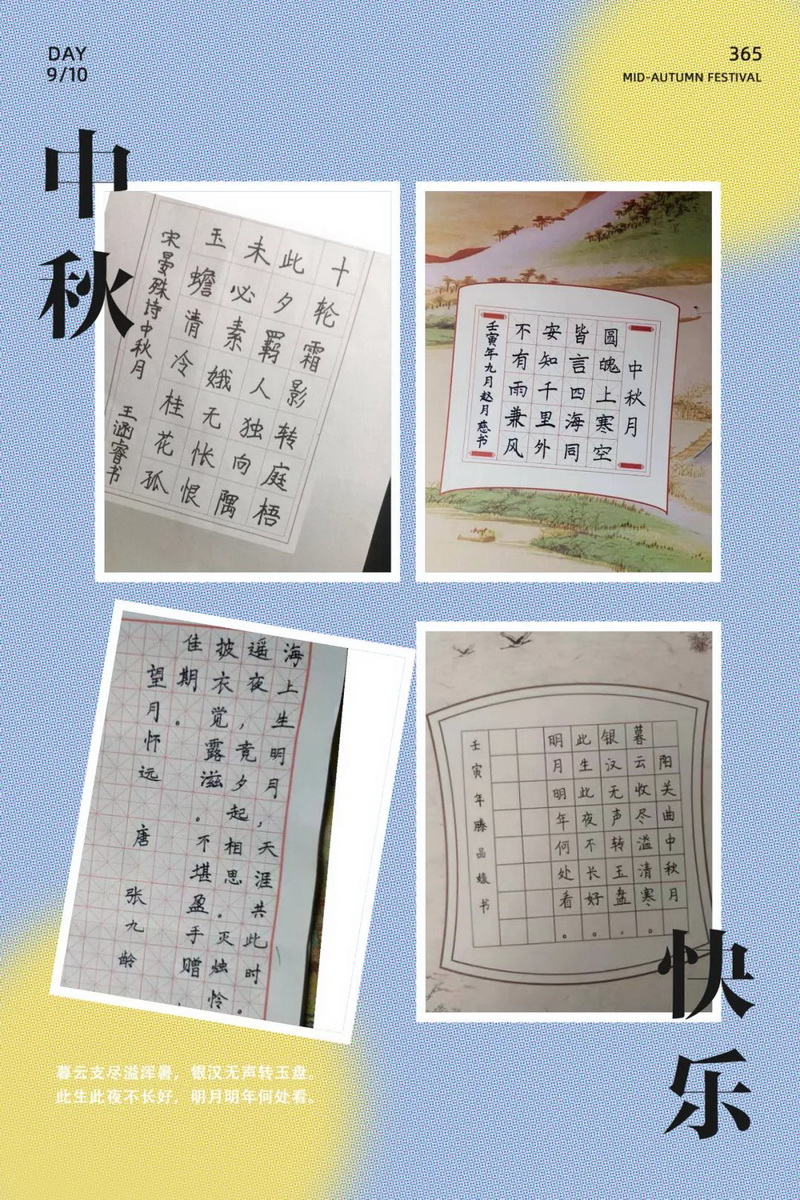 DAY
9/10
365
MID-AUTUMN FESTIVAL
中秋
十轮霜影转庭梧
此夕羁人独向隅
未必素娥无怅恨
玉蟾清冷桂花孤
宋晏殊诗中秋月 王涵睿书
中秋月
圆魄上寒空
皆言四海同
安知千里外
不有雨兼风
壬寅年九月赵月慈书
海上生明月，天涯共此时。
遥夜，竟夕起相思。灭烛怜
披衣觉露滋。不堪盈手赠，
佳期。
望月怀远 唐 张九龄
阳关曲中秋月
暮云收尽溢清寒。
银汉无声转玉盘，
此生此夜不长好。
明月明年何处看。
壬寅年滕品媛书
快乐
暮云支尽溢浑暑，银汉无声转玉盘。
此生此夜不长好，明月明年何处看。